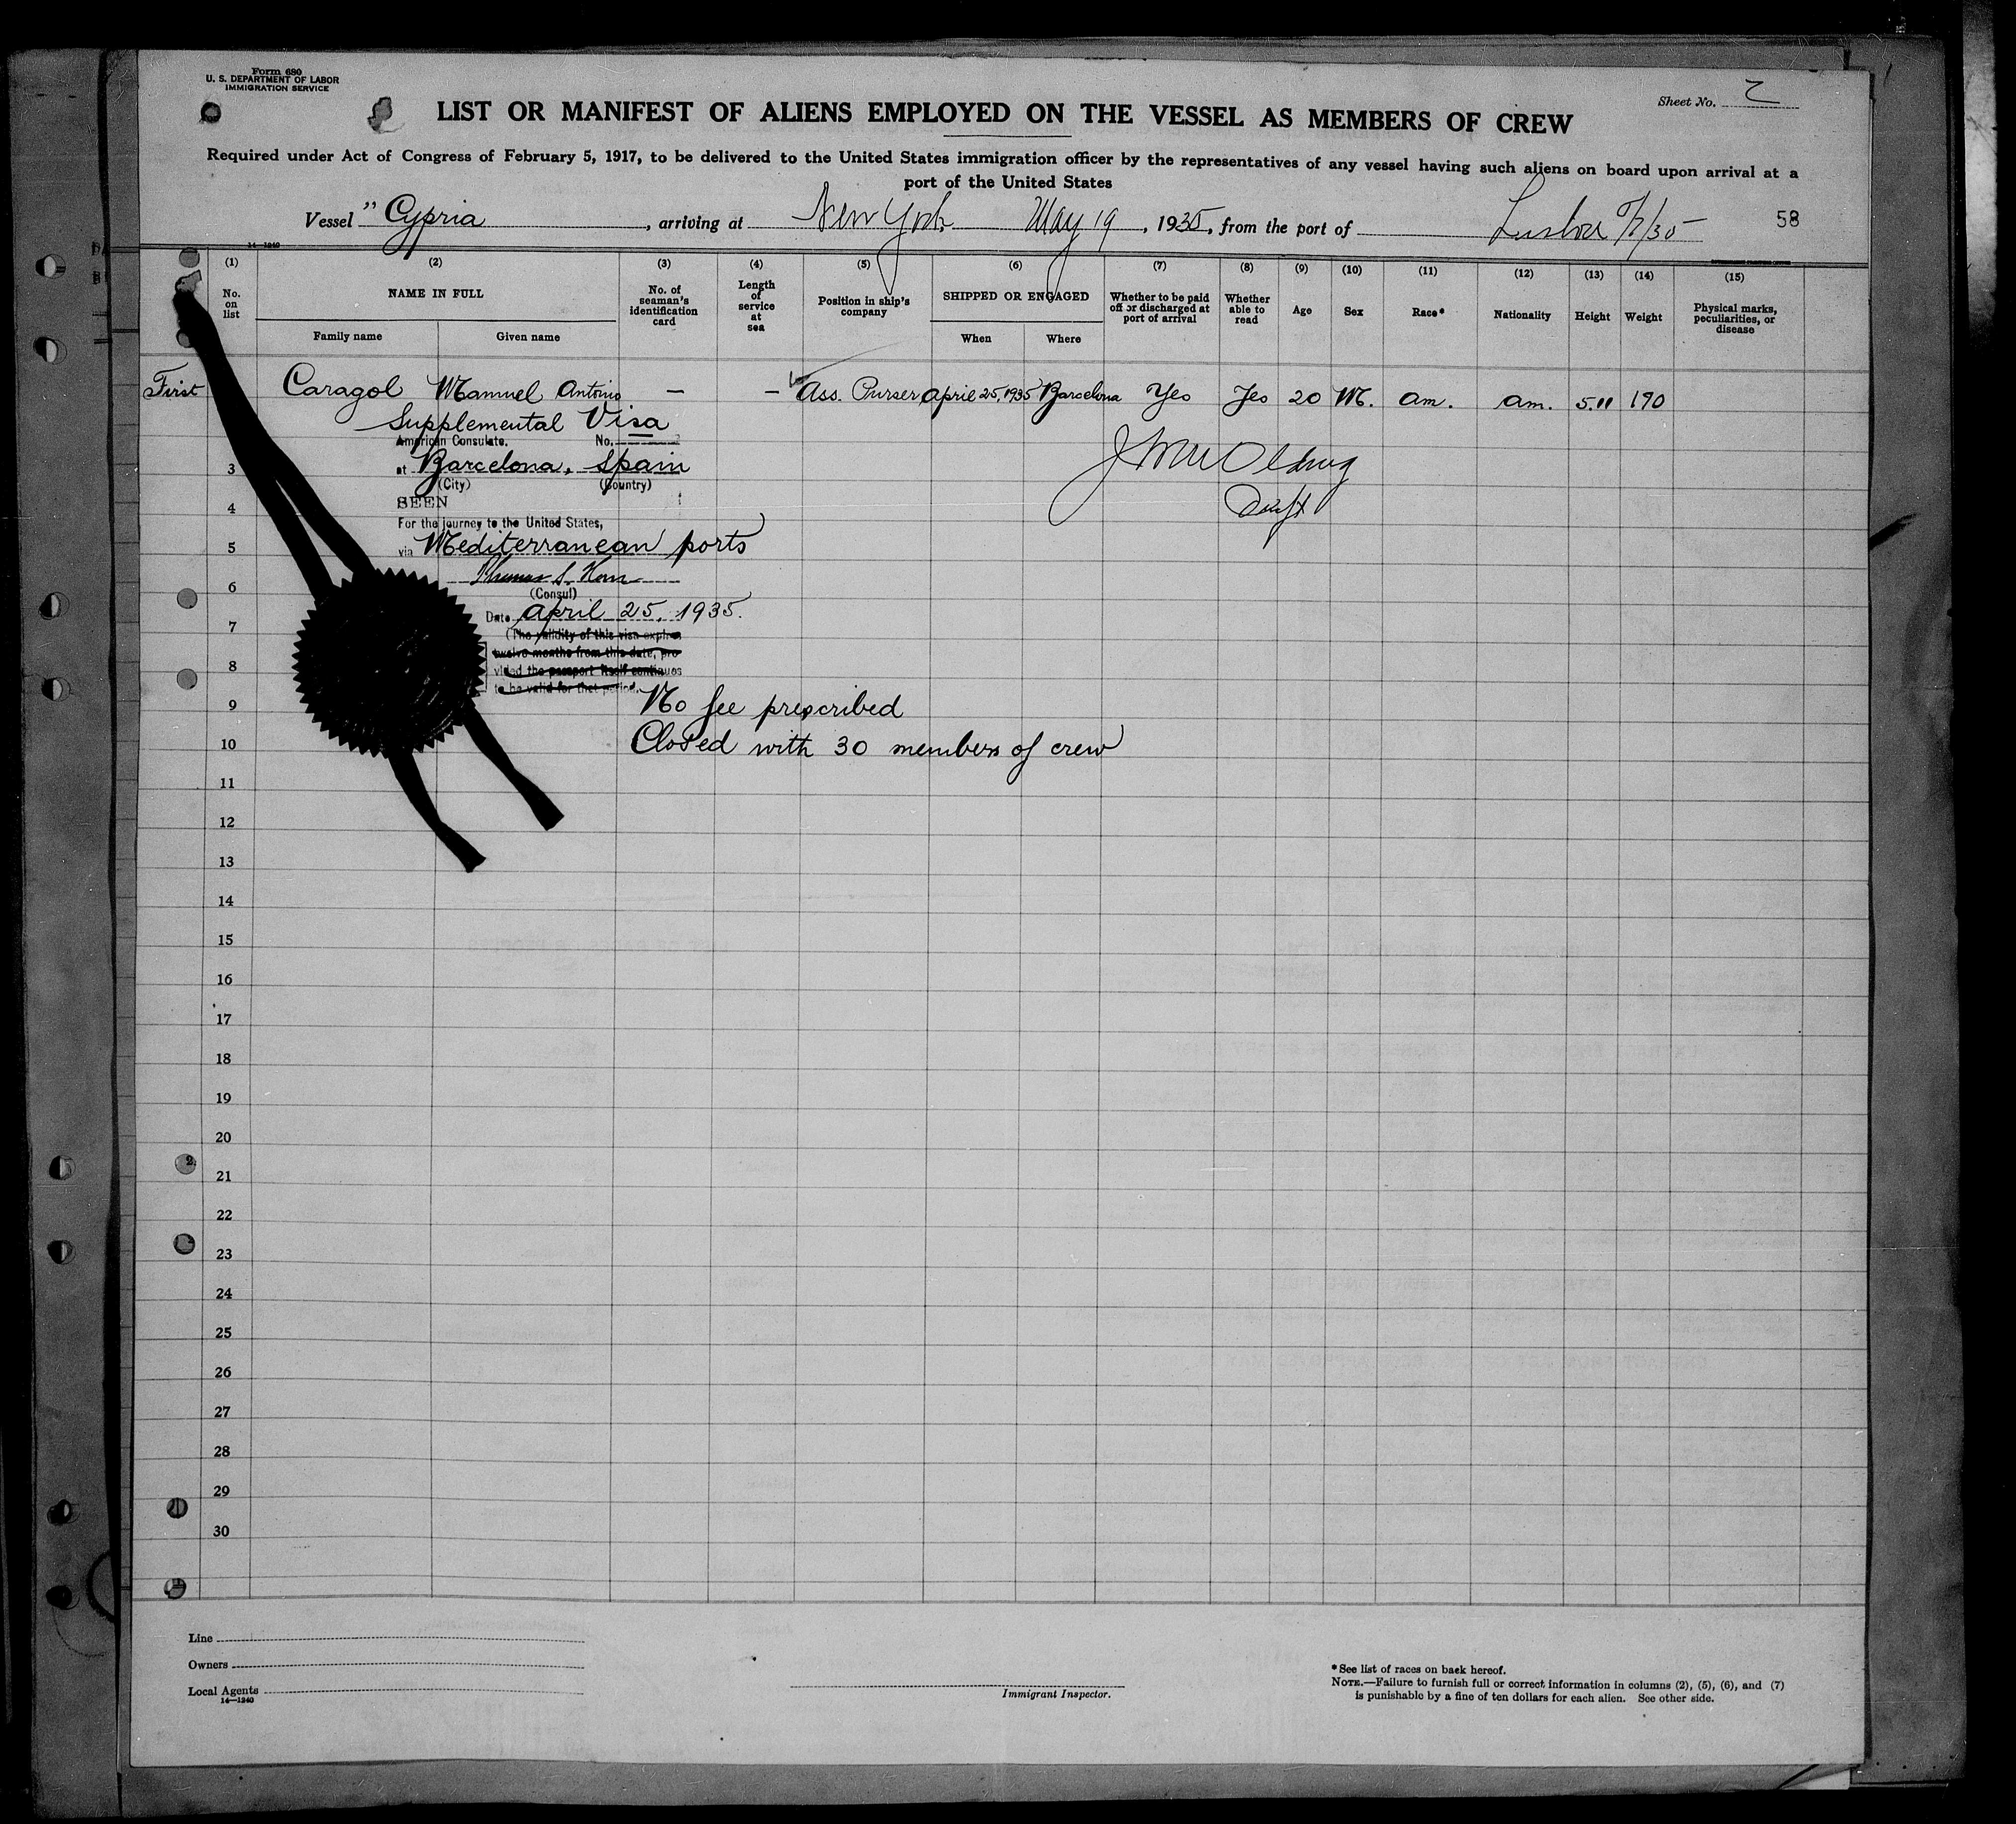 Form 680
U. S. DEPARTMENT OF LABOR
IMMIGRATION SERVICE
Sheet No. 2
LIST OR MANIFEST OF ALIENS EMPLOYED ON THE VESSEL AS MEMBERS OF CREW
Required under Act of Congress of February 5, 1917, to be delivered to the United States immigration officer by the representatives of any vessel having such aliens on board upon arrival at a
port of the United States
Vessel "Cypria, arriving at New York, May 19, 1935, from the port of
58
14—1240
(1) (2) (3) (4) (5) (6) (7) (8) (9) (10) (11) (12) (13) (14) (15)
No. on list
NAME IN FULL
Family name
Given name
No. of seaman's identification card
Length of service at sea
Position in ship's company
SHIPPED OR ENGAGED
When
Where
Whether to be paid off or discharged at port of arrival
Whether able to read
Age
Sex
Race*
Nationality
Height
Weight
Physical marks, peculiarities, or disease
First Caragol Manuel Antonio — — Ass. Purser April 25, 1935 Barcelona Yes Yes 20 M. Am. Am. 5.11 190
Supplemental Visa
American Consulate. No.
3 at Barcelona, Spain
(City) (Country)
SEEN
4
For the journey to the United States,
5 via Mediterranean ports
Thomas S. Horn
6
(Consul)
Date April 25, 1935.
7 (The validity of this visa expires
twelve months from this date, pro-
8 vided the passport itself continues
to be valid for that period.
9 No fee prescribed
10 Closed with 30 members of crew
11
12
13
14
15
16
17
18
19
20
2.
21
22
23
24
25
26
27
28
29
30
Line
Owners
Local Agents
14—1240
Immigrant Inspector.
*See list of races on back hereof.
NOTE.—Failure to furnish full or correct information in columns (2), (5), (6), and (7)
is punishable by a fine of ten dollars for each alien. See other side.